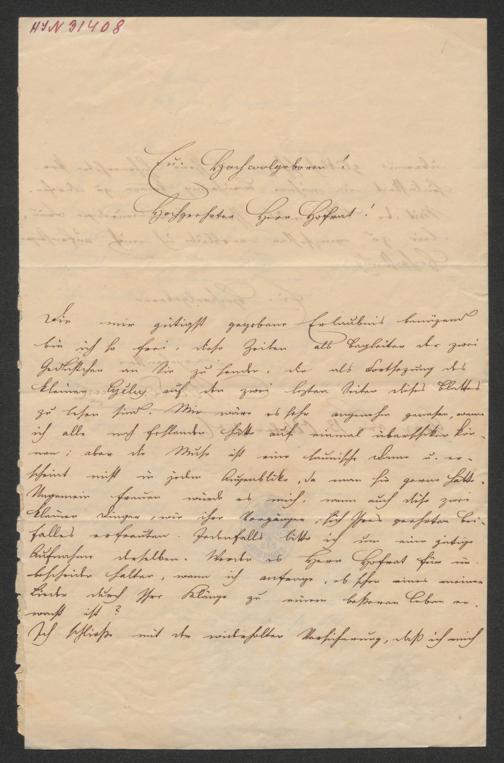 HIN 31408
Eu. Hochwolgeboren!
Hochgeehrter Herr Hofrat!
Die mir gütigst gegebene Erlaubnis benüzend
bin ich so frei, diese Zeilen als Begleiter der zwei
Gedichtchen an Sie zu senden, die als Fortsezung des
kleinen Cyclus auf den zwei lezten Seiten dieses Blattes
zu lesen sind. Mir wäre es sehr angenehm gewesen, wenn
ich alle noch fehlenden hätte auf einmal überschiken kön-
nen; aber die Muse ist eine launische Dame u. er-
scheint nicht in jedem Augenblike, da man sie gerne hätte.
Ungemein freuen würde es mich, wenn auch diese zwei
kleinen Dinger, wie ihre Vorgänger, sich Ihres geehrten Bei-
falles erfreuten. Jedenfalls bitte ich um eine gütige
Aufnahme derselben. Werden es Herr Hofrat für un-
bescheiden halten, wenn ich anfrage, ob schon eines meiner
Lieder durch Ihre Klänge zu einem besseren Leben er-
wacht ist?
Ich schließe mit der wiederholten Versicherung, daß ich mich